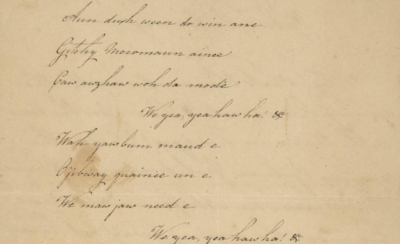 Aun dush ween do win ane
Gitchy Mocomaun aince
Caw awzhaw woh da mode
We yea, yea haw ha! &c
Wah yaw bum maud e
Ojibway quaince un e
We maw jaw need e
We yea, yea haw ha! &c